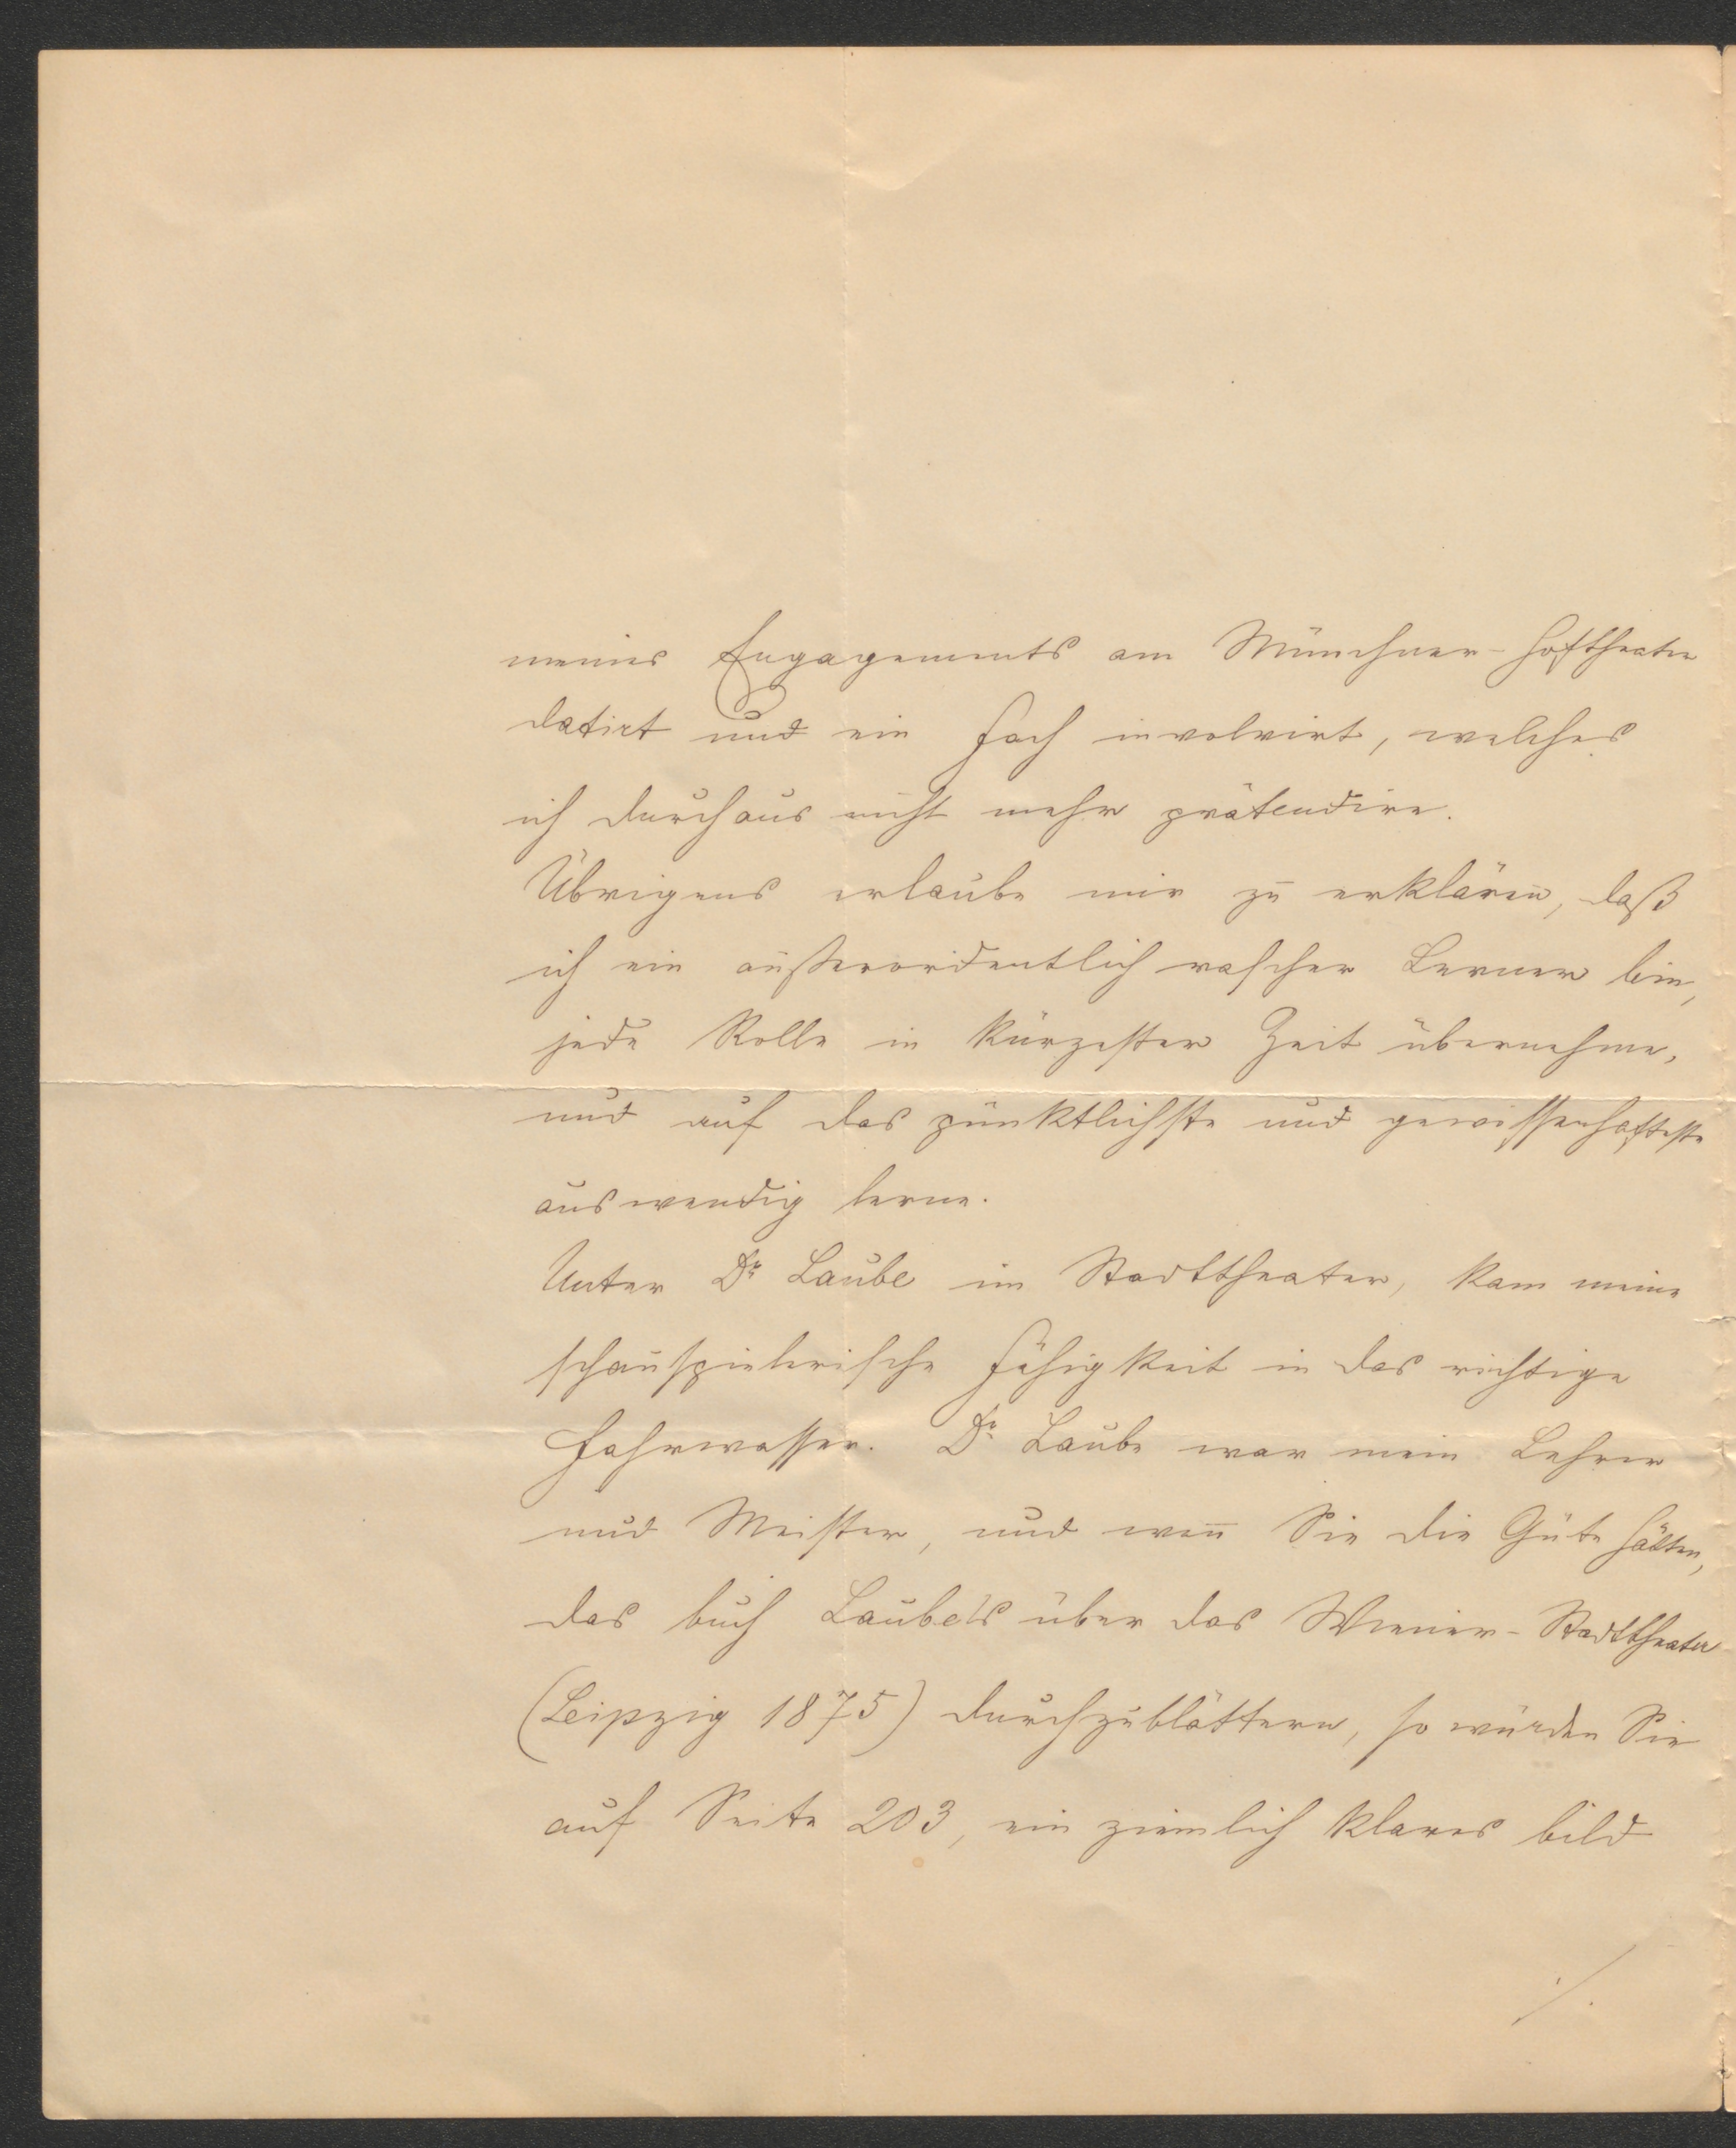 meines Engagements am Münchner-Hoftheater
datirt und ein Fach involvirt, welches
ich durchaus nicht mehr prätendire.
Übrigens erlaube mir zu erklären, daß
ich ein außerordentlich rascher Lerner bin,
jede Rolle in kürzester Zeit übernehme,
und auf das pünktlichste und gewissenhafteste
auswendig lerne.
Unter Dr Laube im Stadttheater, kam meine
schauspielerische Fähigkeit in das richtige
Fahrwasser. Dr. Laube war mein Lehrer
und Meister, und weñ Sie die Güte hätten,
das buch Laube's über das Wiener-Stadttheater
(Leipzig 1875) durchzublättern, so würden Sie
auf Seite 203, ein ziemlich klares bild
./.